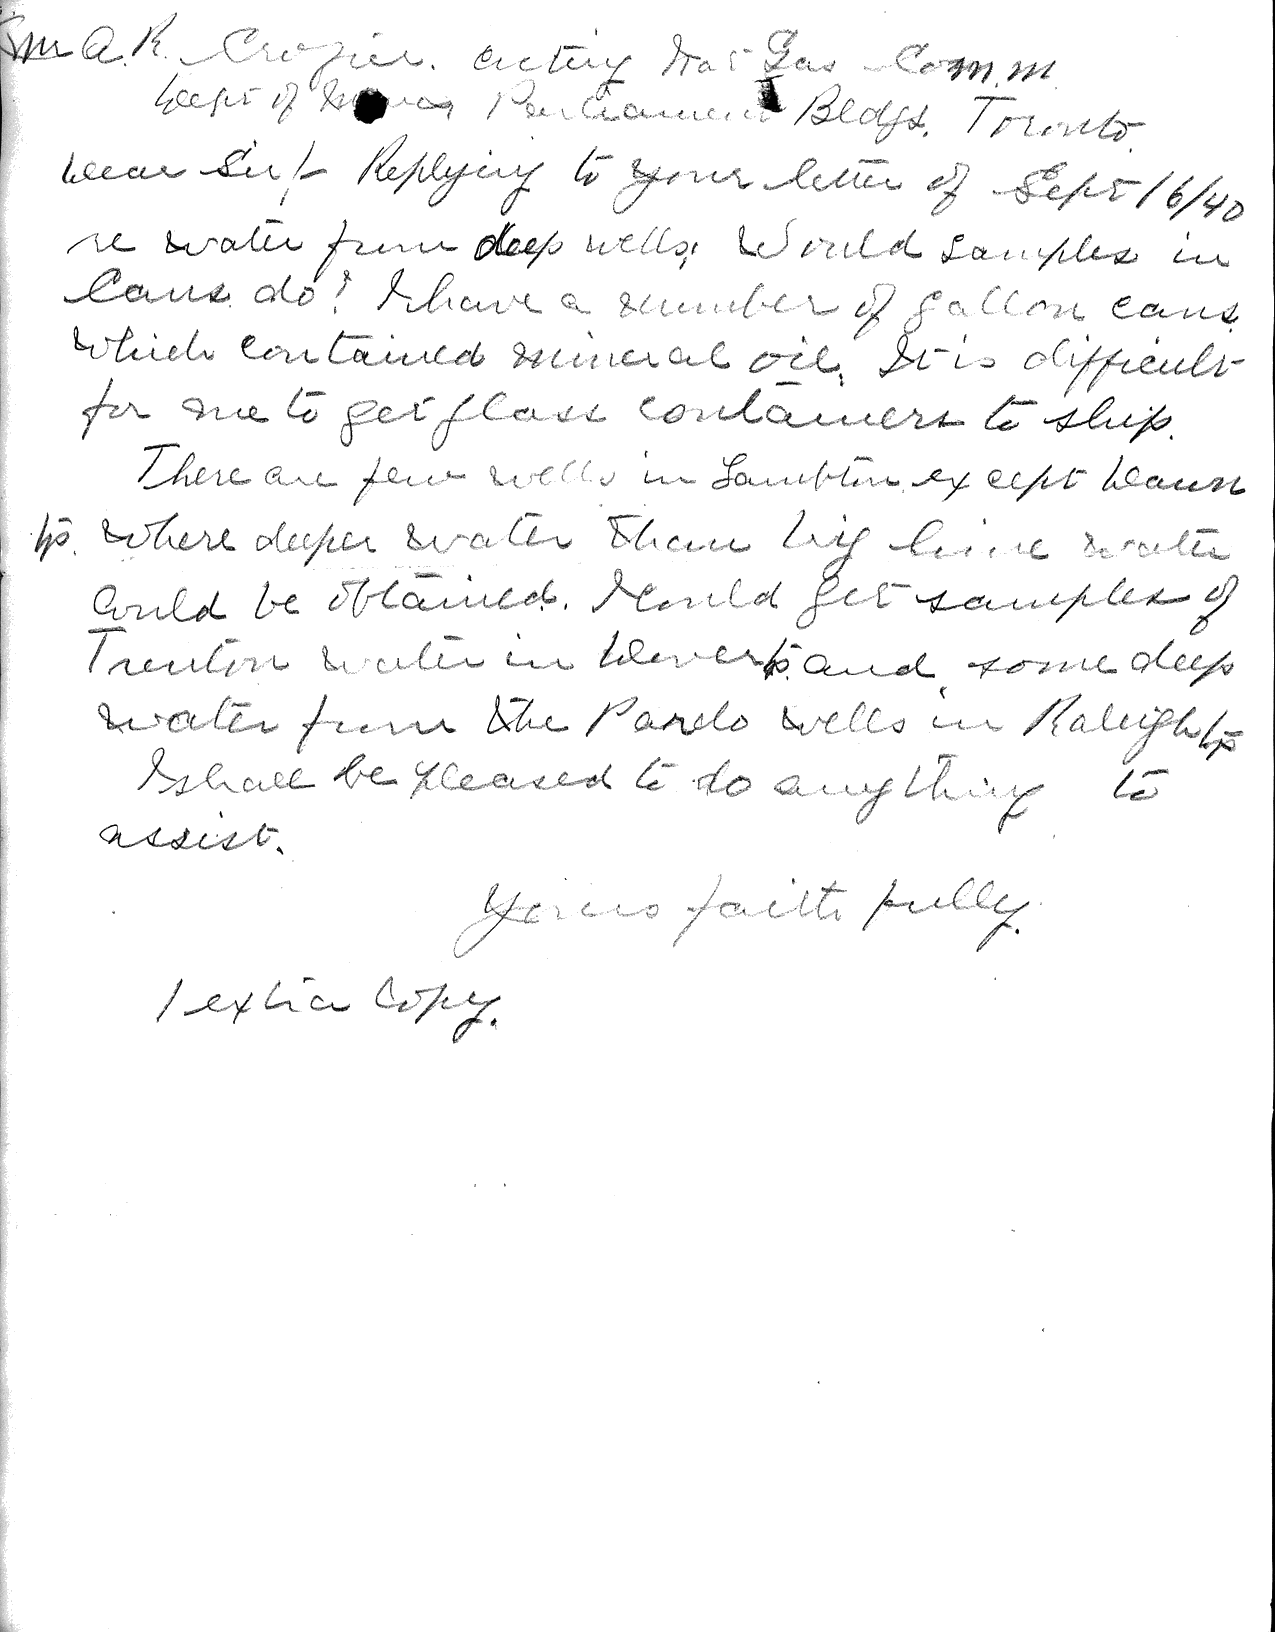 Mr A. R. Crozier. Acting Nat Gas Comm.
Dept of Mines Parliament Bldgs. Toronto.
Dear Sir/- Replying to your letter of Sept 16/40
re water from deep wells; Would samples in
Cans do? I have a number of gallon cans
which contained mineral oil. It is difficult
for me to get glass containers to ship.
There are few wells in Lambton except Dawn
tp. where deeper water than big lime water
could be obtained. I could get samples of
Trenton water in Dover tp. and some deep
water from the Pardo wells in Raleigh tp
I shall be pleased to do anything to
assist.
Yours faithfully.
1 extra Copy.